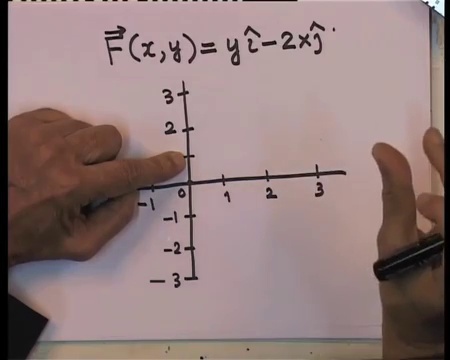 F⃗(x,y) = yî − 2xĵ
3
2
-1 0 1 2 3
-1
-2
-3